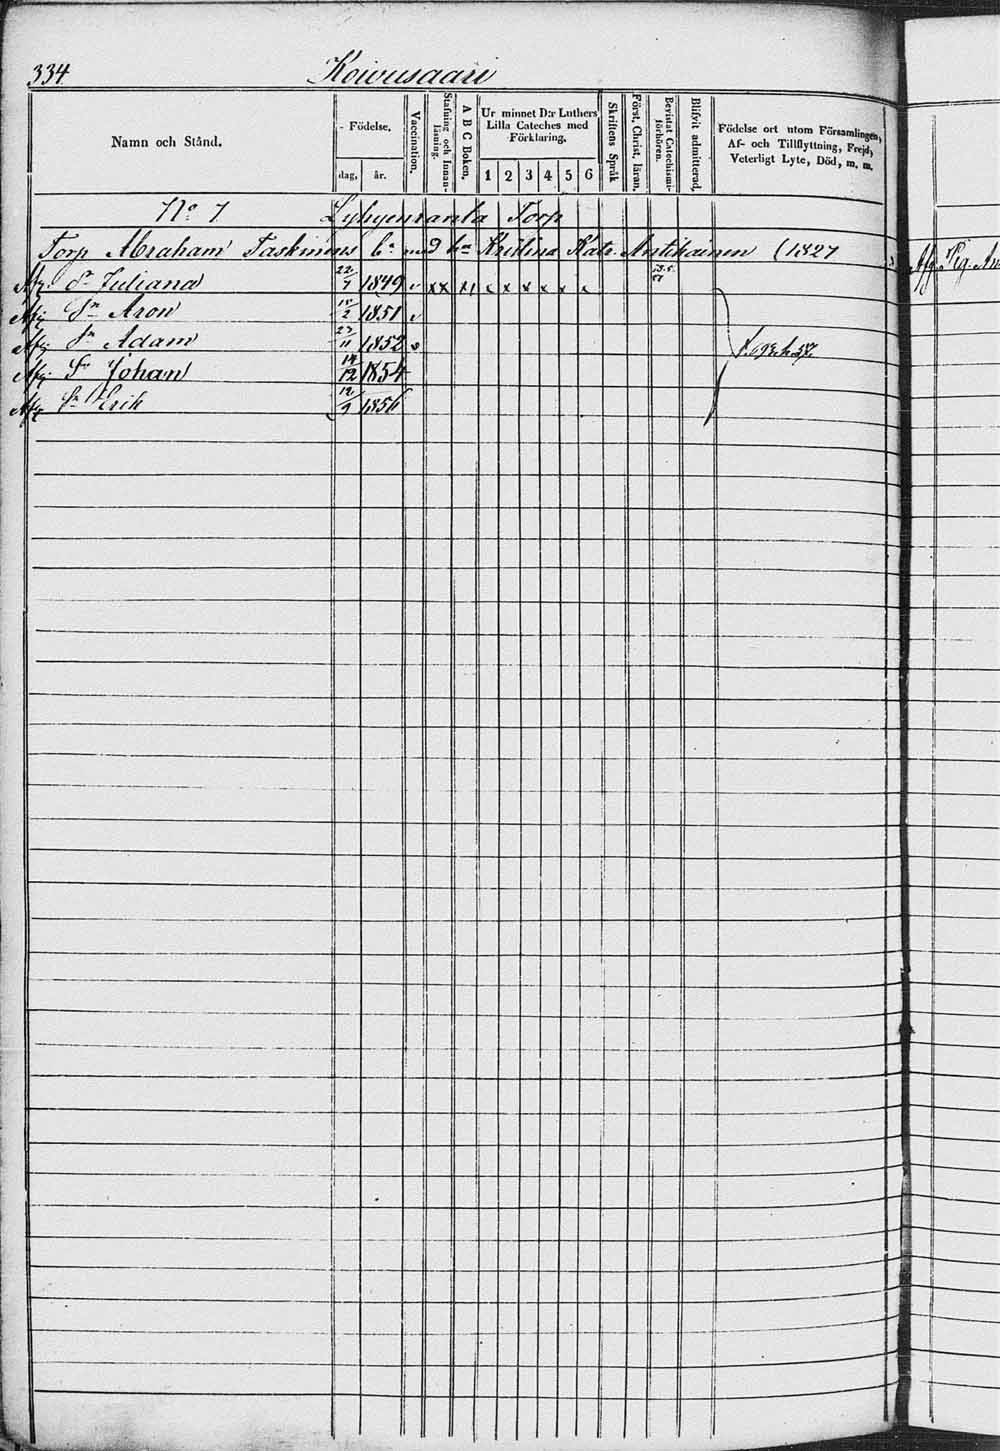 334 Koivusaari
Namn och Stånd. Födelse, dag, år. Vaccination. Stafning och Innanläsning. A B C Boken. Ur minnet D:r Luthers Lilla Cateches med Förklaring. 1 2 3 4 5 6 Skriftens Språk Först. Christ. läran. Bevistat Catechismiförhören. Blifvit admitterad. Födelse ort utom Församlingen, Af- och Tillflyttning, Frejd, Veterligt Lyte, Död, m. m.
No 7 Torp
Torp Abraham Taskinens med Kristina Katr. Antikainen (1827
Afg. Dr Juliana 22/7 1849 v x x x x x x
Afg. Sn Aron 1851 v
Afg. Sn Adam 23/11 1852 v
Afg. Sn Johan 14/12 1854
Afg. Sn Erik 1856
Afg. Pig.